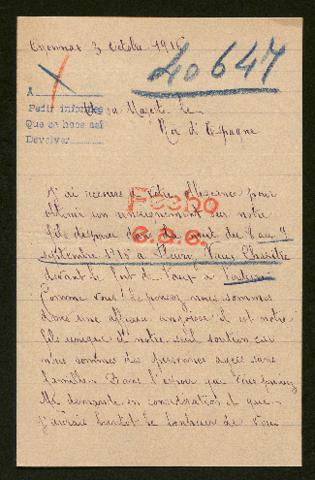 Oyonnax 3 octobre 1916
40647
A
Pedir informes
Que se hace así
Devolver
Sa Majesté le
Roi d'Espagne
Fecho
J'ai recours à votre obligeance pour
obtenir un renseignement sur notre
fils disparu dans la nuit du 8 au 9
septembre 1916 à Fleury Vaux Chapitre
devant le fort de Vaux à Verdun
Comme vous le pensez nous sommes
dans une affreuse angoisse il est notre
fils unique et notre seul soutien car
nous sommes des personnes agées sans
famille. Dans l'espoir que vous prenez
Ma demande en considération et que
j'aurais bientôt le bonheur de vous